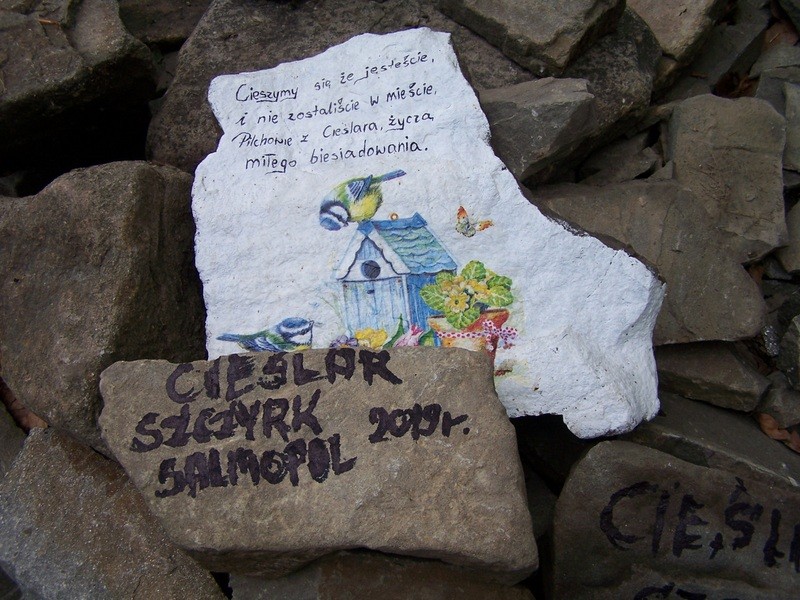 Cieszymy się że jesteście,
i nie zostaliście w mieście,
Pilchowie z Cieślara, życzą
miłego biesiadowania.
CIESLAR
SZCZYRK 2019 r.
SALMOPOL